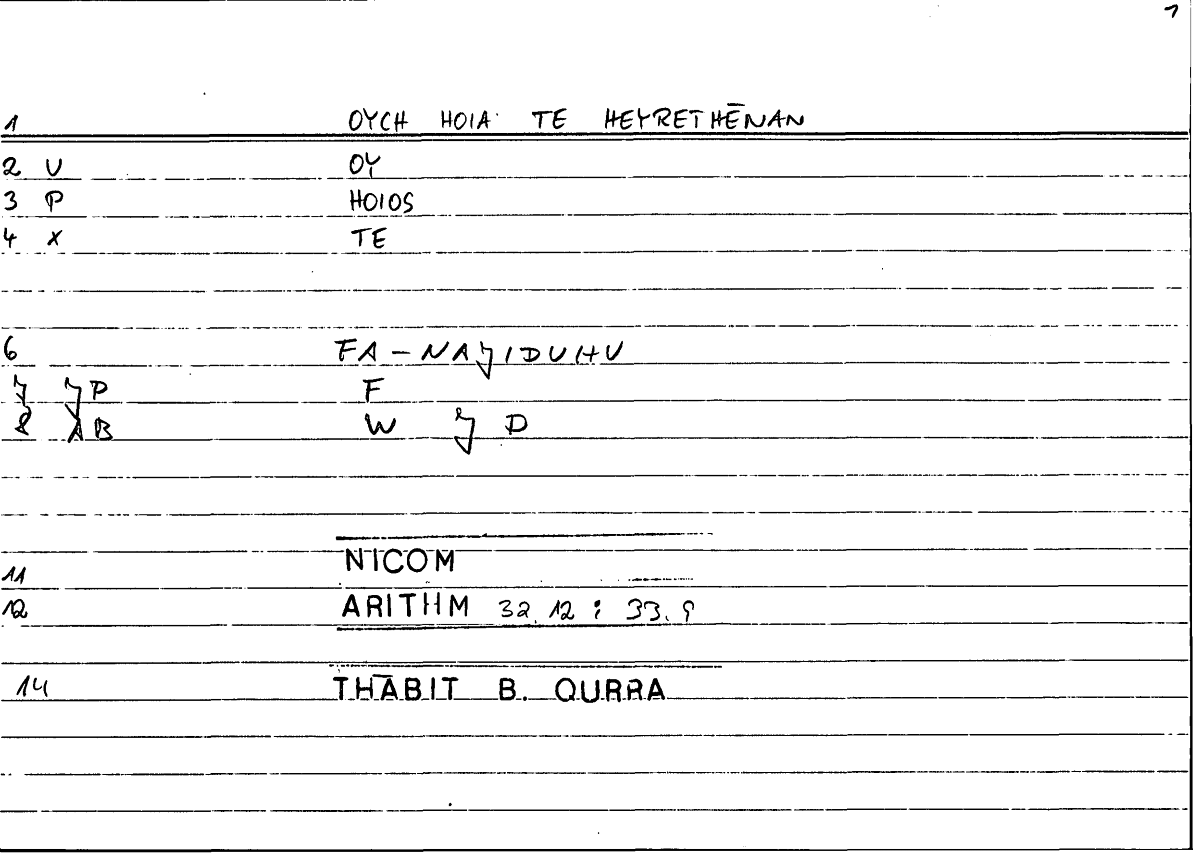 1
1 OYCH HOIA TE HEYRETHĒNAN
2 U OY
3 P HOIOS
4 X TE
6 FA-NAJIDUHU
7 JP F
8 AB W J D
11 NICOM
12 ARITHM 32.12 : 33.9
14 THĀBIT B. QURRA